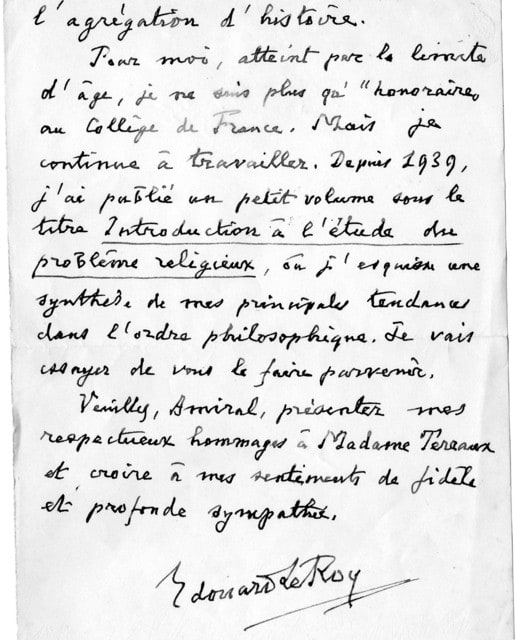 l'agrégation d'histoire.
Pour moi, atteint par la limite
d'âge, je ne suis plus qu'"honoraire"
au Collège de France. Mais je
continue à travailler. Depuis 1939,
j'ai publié un petit volume sous le
titre Introduction à l'étude du
problème religieux, où j'esquisse une
synthèse de mes principales tendances
dans l'ordre philosophique. Je vais
essayer de vous le faire parvenir.
Veuillez, Amiral, présenter mes
respectueux hommages à Madame Tereaux
et croire à mes sentiments de fidèle
et profonde sympathie.
Edouard Le Roy